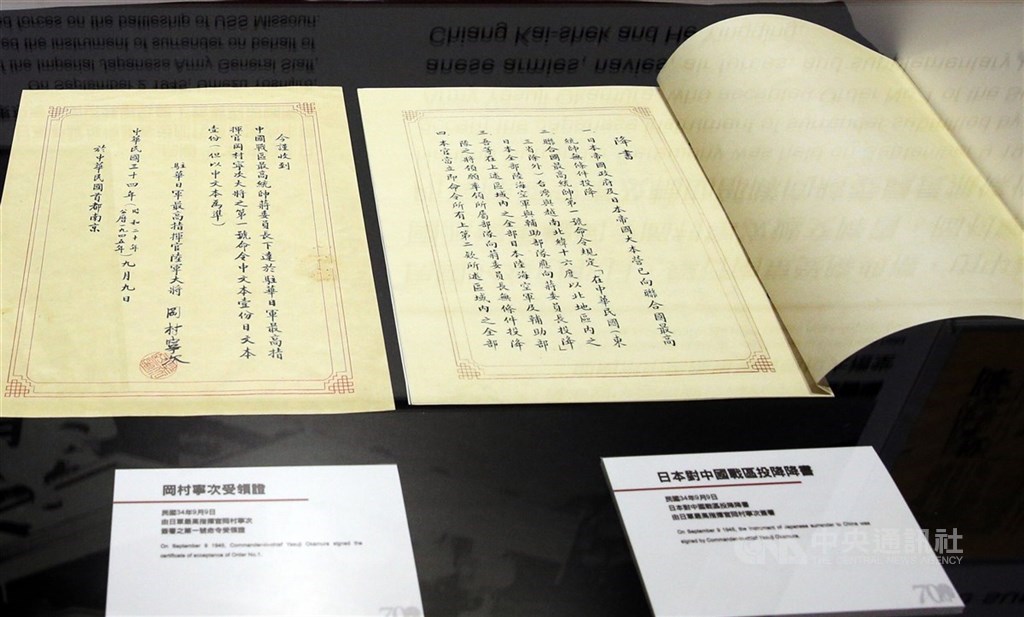 降書
一 日本帝國政府及日本帝國大本營已向聯合國最高
統帥無條件投降
二 聯合國最高統帥第一號命令規定「在中華民國（東
三省除外）台灣與越南北緯十六度以北地區內之
日本全部陸海空軍與輔助部隊應向蔣委員長投降」
三 吾等在上述區域內之全部日本陸海空軍及輔助部
隊之將領願率領所屬部隊向蔣委員長無條件投降
四 本官當立即命令所有上第二款所述區域內之全部
今謹收到
中國戰區最高統帥蔣委員長下達於駐華日軍最高指
揮官岡村寧次大將之第一號命令中文本壹份日文本
壹份（但以中文本為準）
駐華日軍最高指揮官陸軍大將 岡村寧次
中華民國三十四年（昭和二十年 公曆一九四五年）九月九日
於中華民國首都南京
岡村寧次受領證
民國34年9月9日
由日軍最高指揮官岡村寧次
簽署之第一號命令受領證
On September 9 1945, Commander-in-chief Yasuji Okamura signed the
certificate of acceptance of Order No.1.
日本對中國戰區投降降書
民國34年9月9日
日本對中國戰區投降降書
由日軍最高指揮官岡村寧次簽署
On September 9 1945, the instrument of Japanese surrender to China was
signed by Commander-in-chief Yasuji Okamura.
中央通訊社
CNA
THE CENTRAL NEWS AGENCY
70
70
Chiang Kai-shek and He
anese armies, navies, air forces, and supplementary
forces on the battleship of USS Missouri.
the instrument of surrender on behalf of
the Imperial Japanese Army General Staff,
On September 2 1945, Umezu Yoshijiro,